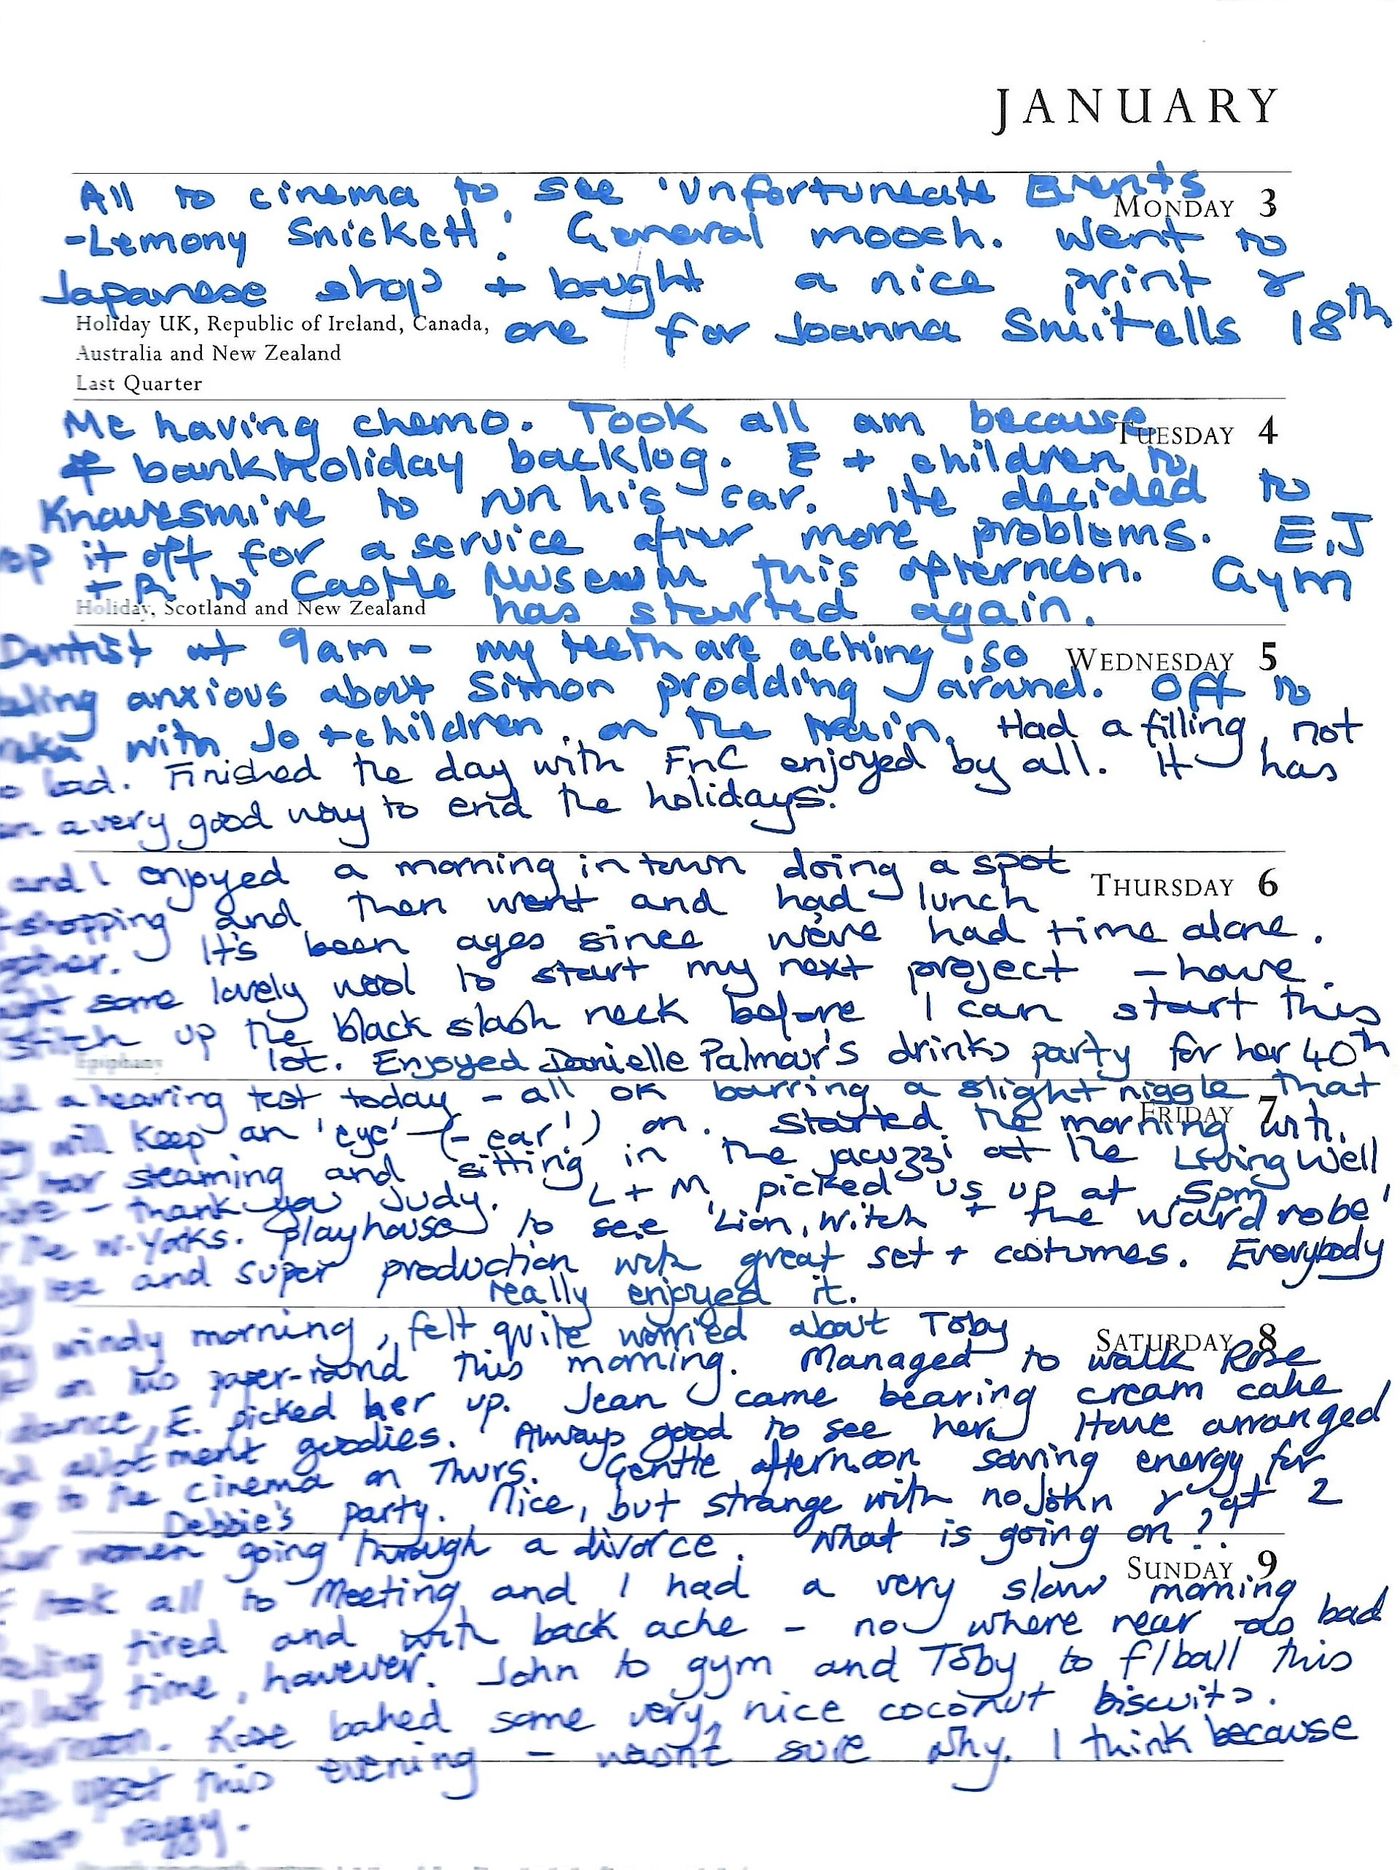 JANUARY
MONDAY 3
All to cinema to see 'Unfortuneate Events
-Lemony Snickett'. General mooch. Went to
Japanese shop + bought a nice print &
one for Joanna Smitells 18th
Holiday UK, Republic of Ireland, Canada,
Australia and New Zealand
Last Quarter
TUESDAY 4
Me having chemo. Took all am because
of bankholiday backlog. E + children to
Knavesmire to run his car. He decided to
it off for a service after more problems. E, J
+ R to Castle Museum this afternoon. Gym
has started again.
Holiday, Scotland and New Zealand
WEDNESDAY 5
Dentist at 9am - my teeth are aching, so
anxious about Simon prodding around. Off to
with Jo + children, on the train. Had a filling, not
bad. Finished the day with FnC enjoyed by all. It has
a very good way to end the holidays.
THURSDAY 6
and I enjoyed a morning in town doing a spot
shopping and then went and had lunch
It's been ages since we've had time alone.
some lovely wool to start my next project - have
stitch up the black slash neck before I can start this
lot. Enjoyed Danielle Palmour's drinks party for her 40th
Epiphany
FRIDAY 7
a hearing test today - all OK barring a slight niggle that
will keep an 'eye' (- ear') on. Started the morning with
steaming and sitting in the jacuzzi at the Living Well
- thank you Judy. L + M picked us up at 5pm
the W. Yorks. Playhouse to see 'Lion, Witch + the Wardrobe'
and super production with great set + costumes. Everybody
really enjoyed it.
SATURDAY 8
windy morning, felt quite worried about Toby
on his paper-round this morning. Managed to walk Rose
dance, E. picked her up. Jean came bearing cream cake
allotment goodies. Always good to see her. Have arranged
to the cinema on Thurs. Gentle afternoon saving energy for
Debbie's party. Nice, but strange with no John & at 2
women going through a divorce. What is going on??
SUNDAY 9
took all to Meeting and I had a very slow morning
tired and with back ache - no where near as bad
last time, however. John to gym and Toby to f/ball this
Rose baked some very nice coconut biscuits.
upset this evening - wasn't sure why. I think because
raggy.